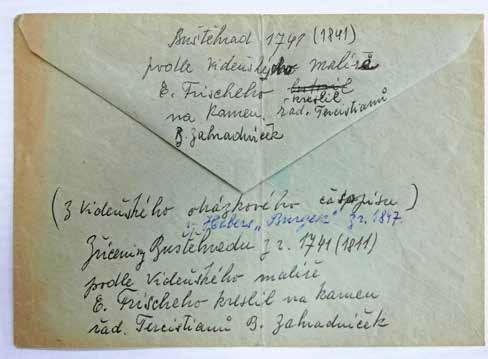 Buštěhrad 1741 (1841)
podle vídeňského malíře
E. Frischeho kreslil
na kamen. řad. Tercistianů
B. Zahradníček
(Z vídeňského obrázkového časopisu)
v Hebers „Burgen" z r. 1847.
Zříceniny Buštěhradu z r. 1741 (1811)
podle vídeňského malíře
E. Frischeho kreslil na kamen
řad. Tercistianů B. Zahradníček